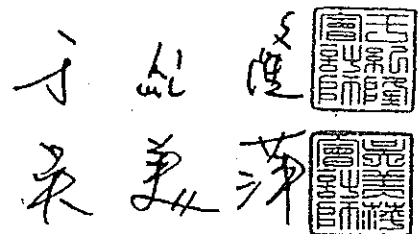 于紀隆
于紀隆會計師
吳美萍
吳美萍會計師